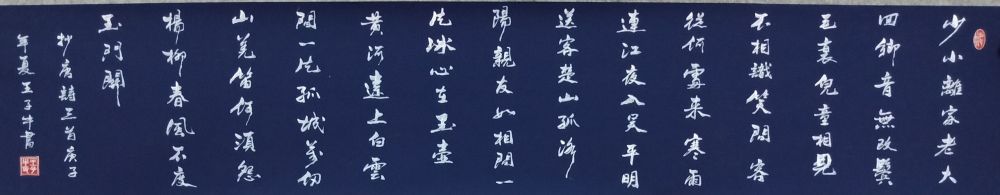 少小離家老大
回鄉音無改鬢
毛衰兒童相見
不相識笑問客
從何處來寒雨
連江夜入吳平明
送客楚山孤洛
陽親友如相問一
片冰心在玉壺
黃河遠上白雲
間一片孤城萬仞
山羌笛何須怨
楊柳春風不度
玉門關
抄唐詩三首庚子
年夏王子牛書